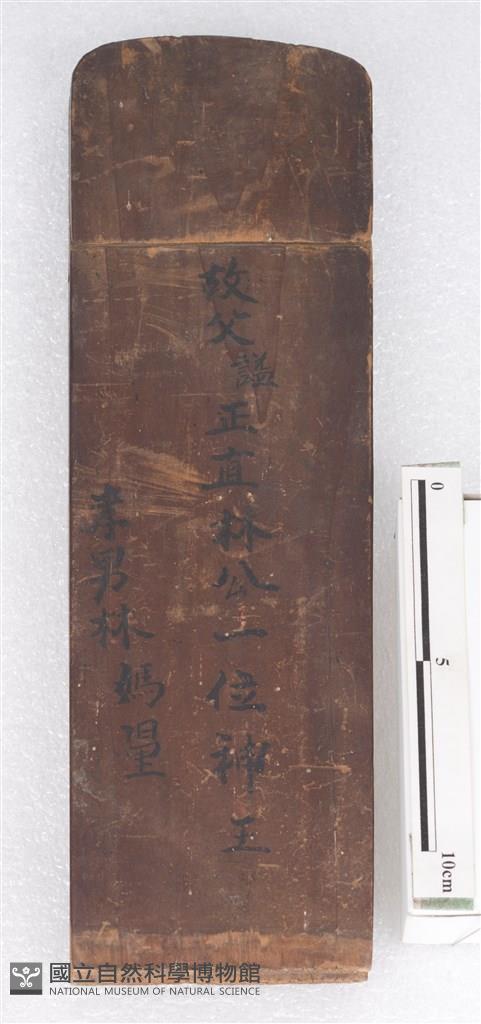 故父諡正直林公一位神王
孝男林媽
0
5
10cm
國立自然科學博物館
NATIONAL MUSEUM OF NATURAL SCIENCE